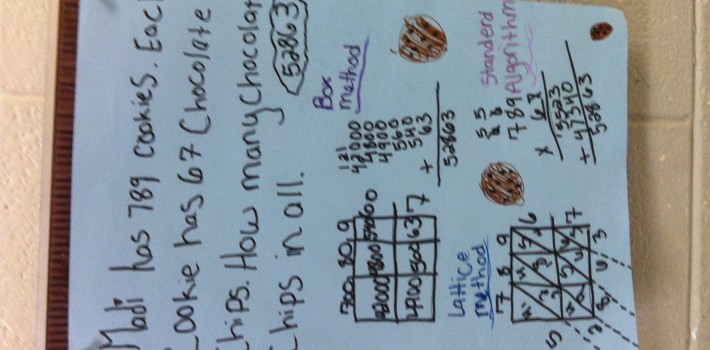 Madi has 789 cookies. Eac
Cookie has 67 Chocolate
Chips. How many chocolat
Chips in all. 52863
Box
method
121
42000
4800
4900
560
540
+ 63
52863
700 80 9
42000 4800 540 60
63 7
Standerd
Algorithm
5 5
6 6
789
x 67
5523
+ 47340
52863
Lattice
method
7 8 9
6
7